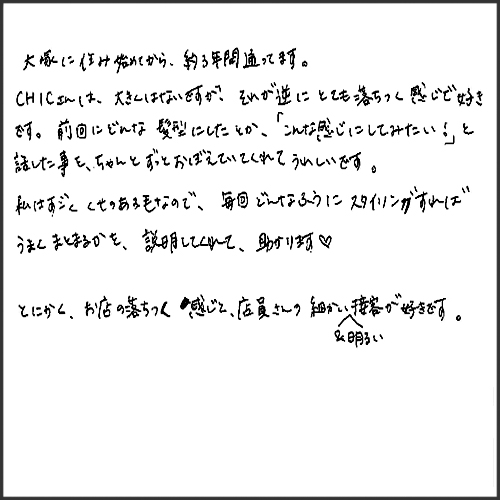 大塚に住み始めてから、約3年間通ってます。
CHICさんは、大きくはないですが、それが逆にとても落ちつく感じで好き
です。前回にどんな髪型にしたとか、「こんな感じにしてみたい!」と
話した事を、ちゃんとずっとおぼえていてくれてうれしいです。
私はすごくくせのある毛なので、毎回どんなふうにスタイリングすれば
うまくまとまるかを、説明してくれて、助かります♡
とにかく、お店の落ちつく感じと、店員さんの細かい接客が好きです。
&明るい